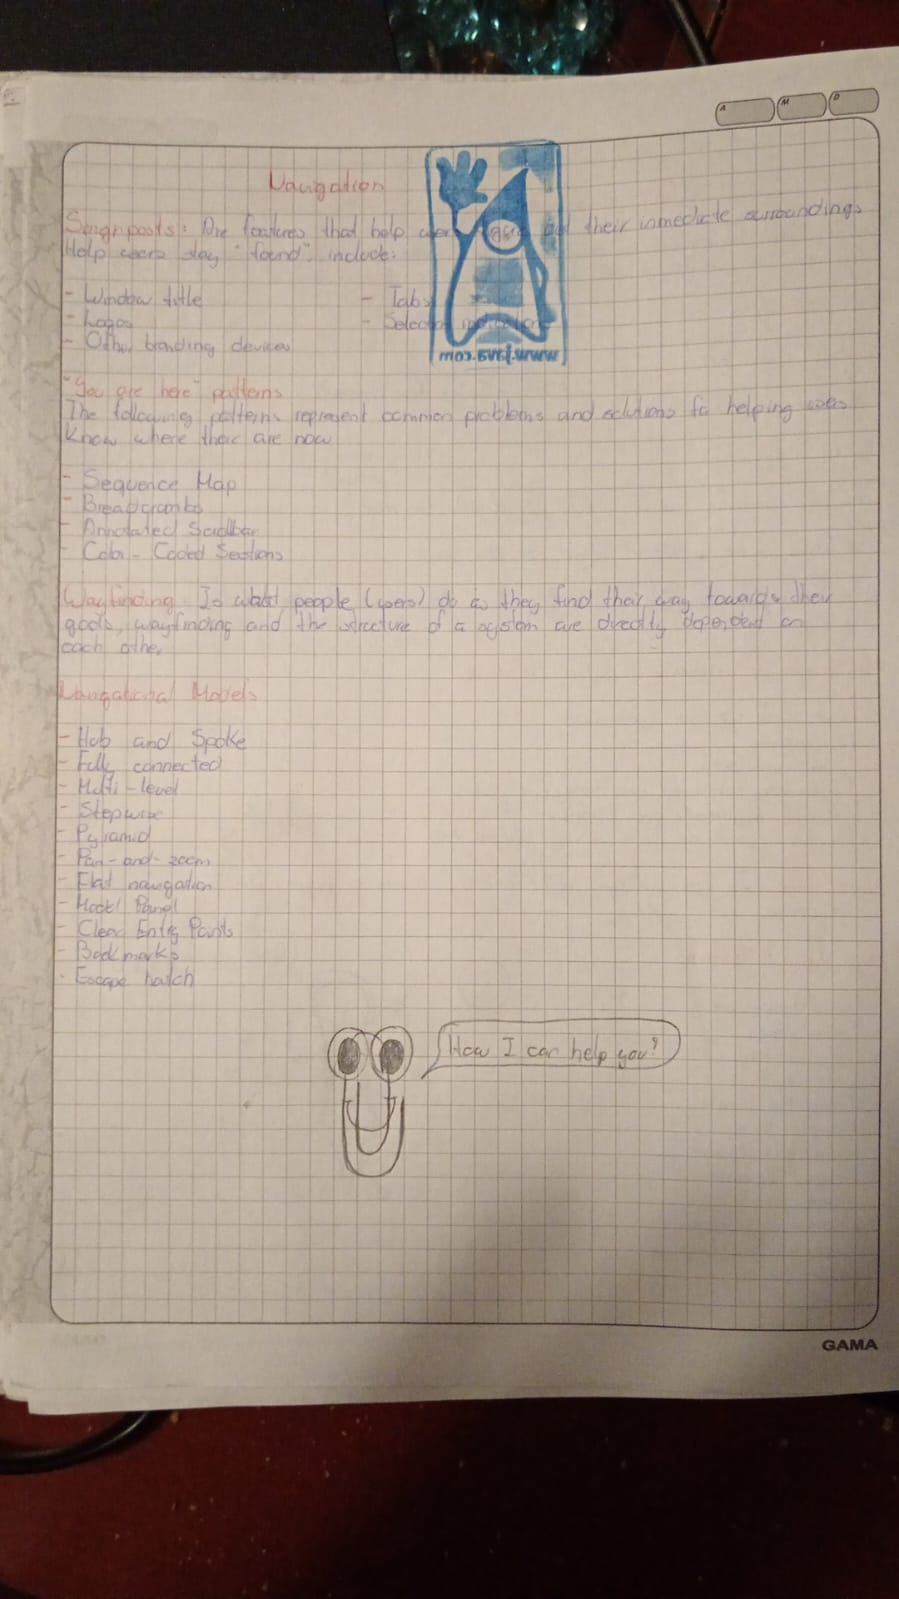 A M D
Navigation
Sengnposts: Are features that help users figure out their inmediate surroundings
Help users stay "found". include:
- Window title - Tabs
- Logos - Selection indications
- Other branding devices
www.java.com
"You are here" patterns
The following patterns represent common problems and solutions for helping users
Know where their are now
- Sequence Map
- Breadcrumbs
- Annotated Scrollbar
- Color - Coded Sections
Wayfinding. Is what people (users) do as they find their way towards they
goals, wayfinding and the structure of a system are directly dependent on
each other
Navigational Models
- Hub and Spoke
- Fully connected
- Multi-level
- Stepwise
- Pyramid
- Pan-and-zoom
- Flat navigation
- Modal Panel
- Clear Entry Points
- Bookmarks
- Escape hatch
How I can help you?
GAMA